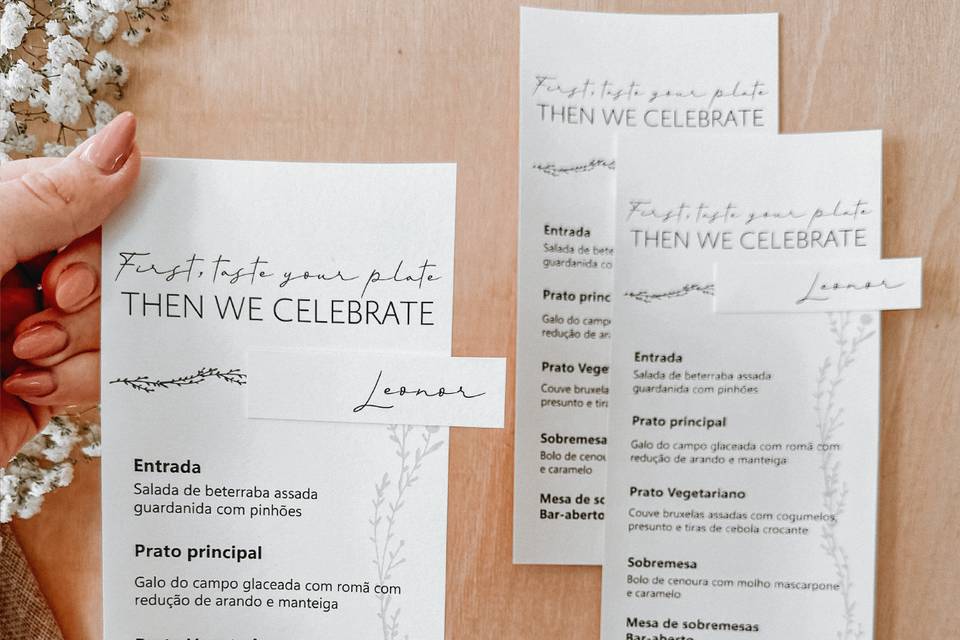 First, taste your plate
THEN WE CELEBRATE
Leonor
Entrada
Salada de beterraba assada
guardanida com pinhões
Prato principal
Galo do campo glaceada com romã com
redução de arando e manteiga
First, taste your plate
THEN WE CELEBRATE
Entrada
Salada de
guardanida
Prato
Galo do
redução de
Prato
Couve bruxelas
presunto e
Sobremesa
Bolo de
e caramelo
Mesa de
Bar-aberto
First, taste your plate
THEN WE CELEBRATE
Leonor
Entrada
Salada de beterraba assada
guardanida com pinhões
Prato principal
Galo do campo glaceada com romã com
redução de arando e manteiga
Prato Vegetariano
Couve bruxelas assadas com cogumelos,
presunto e tiras de cebola crocante
Sobremesa
Bolo de cenoura com molho mascarpone
e caramelo
Mesa de sobremesas
Bar-aberto